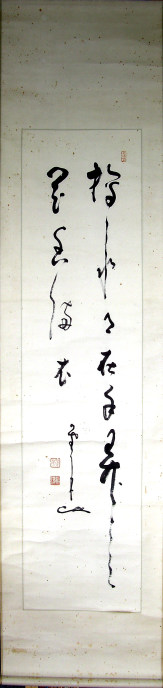 掬水月在手弄
花香満衣